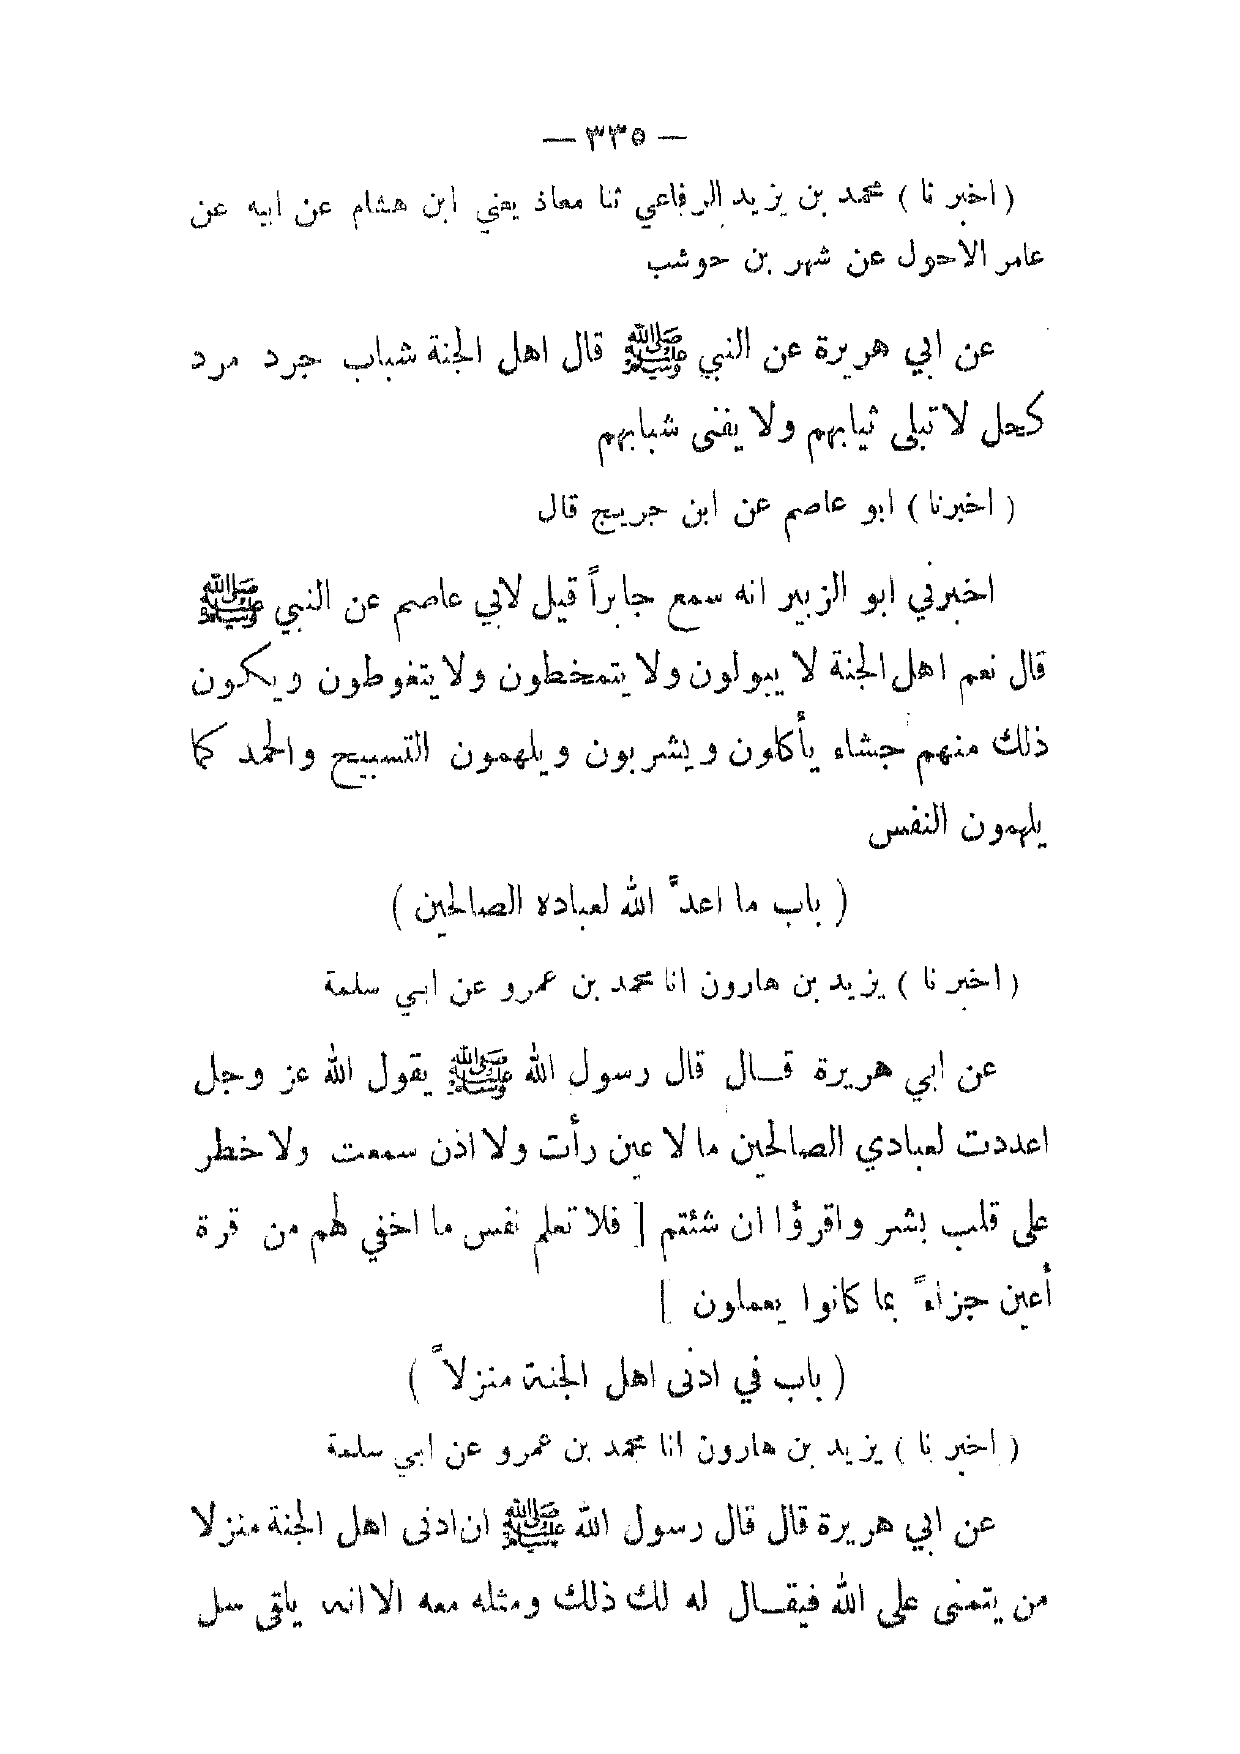 — ٣٣٥ —
( اخبر نا ) محمد بن يزيد الرفاعي ثنا معاذ يعني ابن هشام عن ابيه عن
عامر الاحول عن شهر بن حوشب
عن ابي هريرة عن النبي ﷺ قال اهل الجنة شباب جرد مرد
كحل لا تبلى ثيابهم ولا يفنى شبابهم
( اخبرنا ) ابو عاصم عن ابن جريج قال
اخبرني ابو الزبير انه سمع جابراً قيل لابي عاصم عن النبي ﷺ
قال نعم اهل الجنة لا يبولون ولا يتمخطون ولا يتغوطون ويكون
ذلك منهم جشاء يأكلون ويشربون ويلهمون التسبيح والحمد كما
يلهمون النفس
( باب ما اعدّ الله لعباده الصالحين )
( اخبر نا ) يزيد بن هارون انا محمد بن عمرو عن ابي سلمة
عن ابي هريرة قــال قال رسول الله ﷺ يقول الله عز وجل
اعددت لعبادي الصالحين ما لا عين رأت ولا اذن سمعت ولا خطر
على قلب بشر واقرؤا ان شئتم [ فلا تعلم نفس ما اخفي لهم من قرة
أعين جزاءً بما كانوا يعملون ]
( باب في ادنى اهل الجنة منزلاً )
( اخبر نا ) يزيد بن هارون انا محمد بن عمرو عن ابي سلمة
عن ابي هريرة قال قال رسول الله ﷺ ان ادنى اهل الجنة منزلا
من يتمنى على الله فيقــال له لك ذلك ومثله معه الا انه يلقى سل